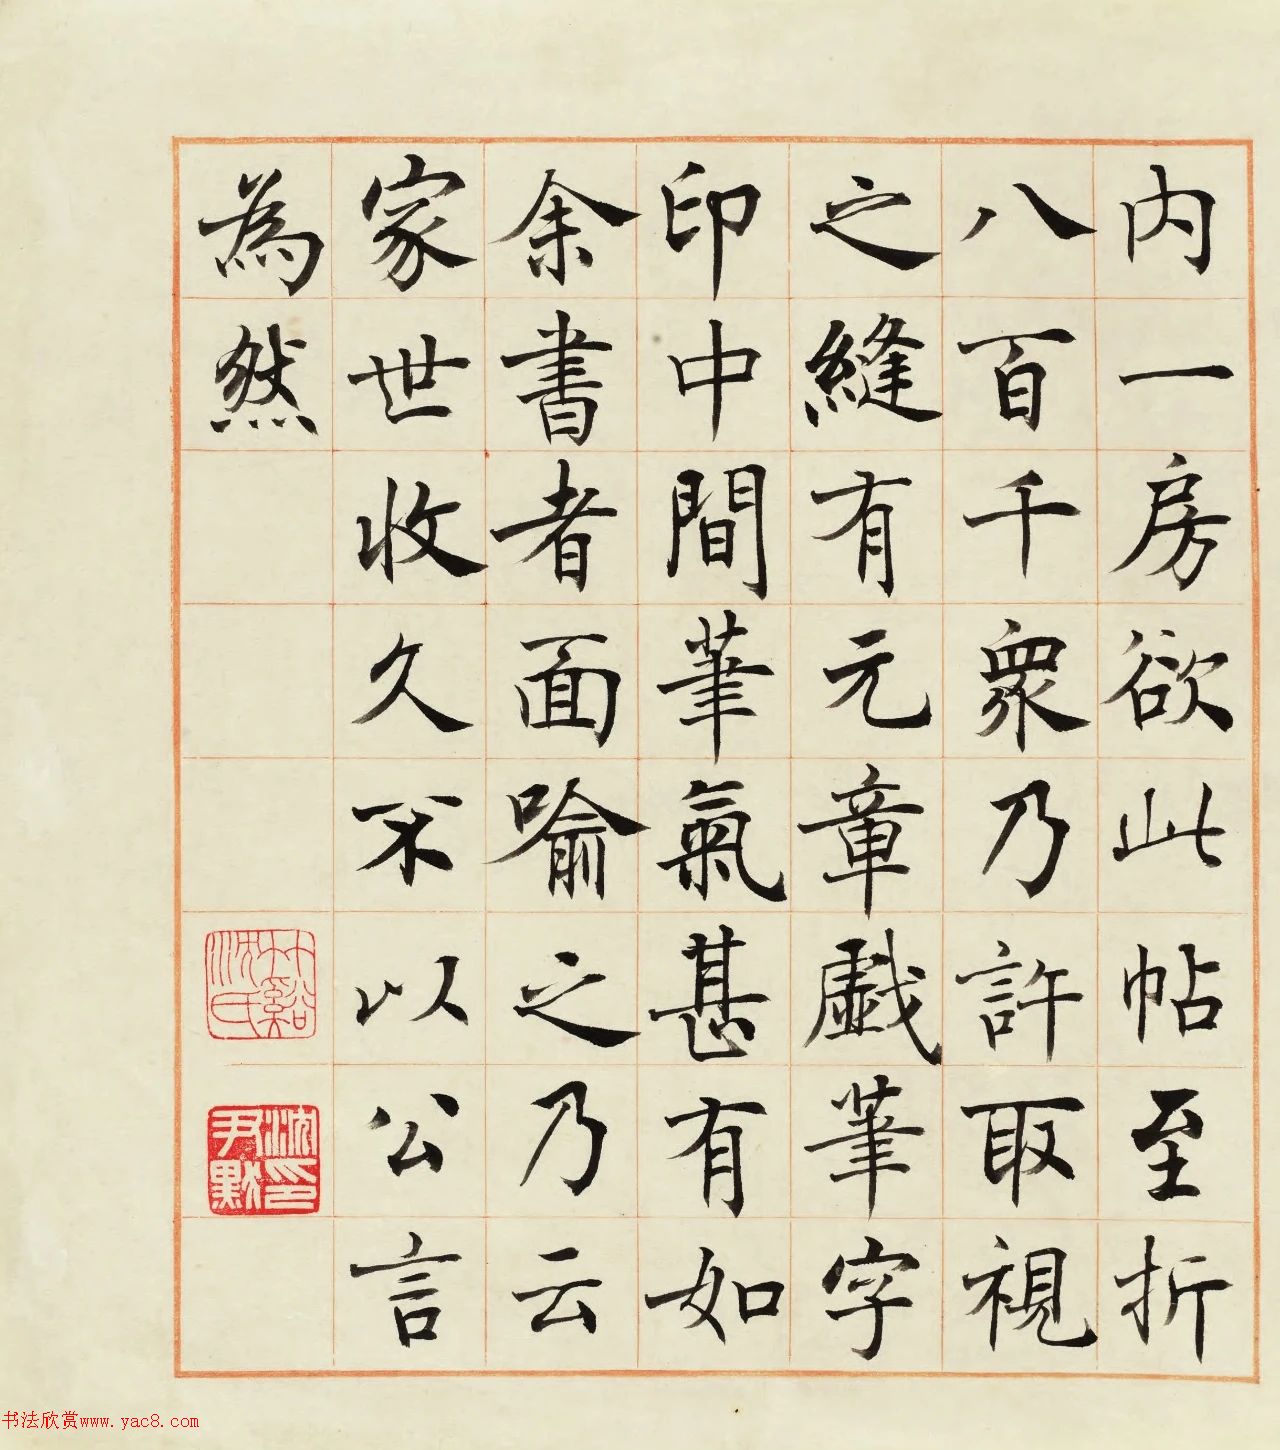 内一房欲此帖至折
八百千衆乃許取視
之縫有元章戱筆字
印中間筆氣甚有如
余書者面喻之乃云
家世收久不以公言
為然
竹谿沈氏
沈尹默印
书法欣赏www.yac8.com